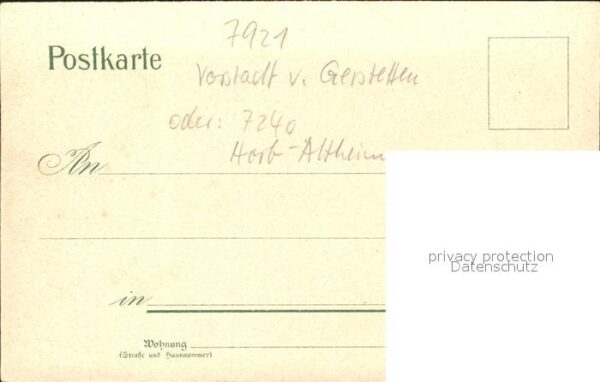 7921
Postkarte
Vorstadt v. Gerstetten
oder: 7240
Horb-Altheim
An
privacy protection
Datenschutz
in
Wohnung
(Straße und Hausnummer)